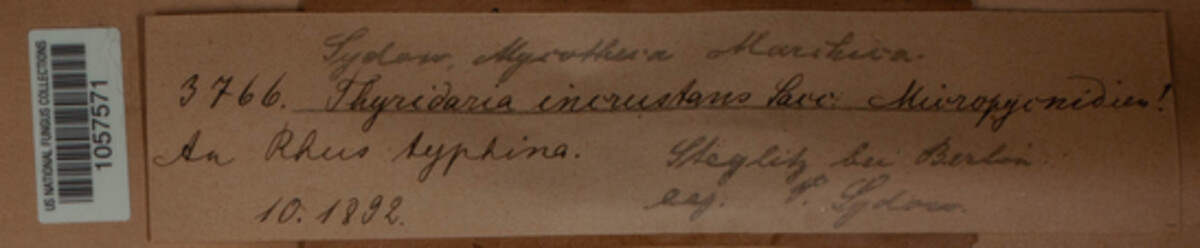 US NATIONAL FUNGUS COLLECTIONS
1057571
Sydow, Mycotheca Marchica.
3766. Thyridaria incrustans Sacc. Micropycnidien!
An Rhus typhina.
Steglitz bei Berlin.
10. 1892.
leg. P. Sydow.